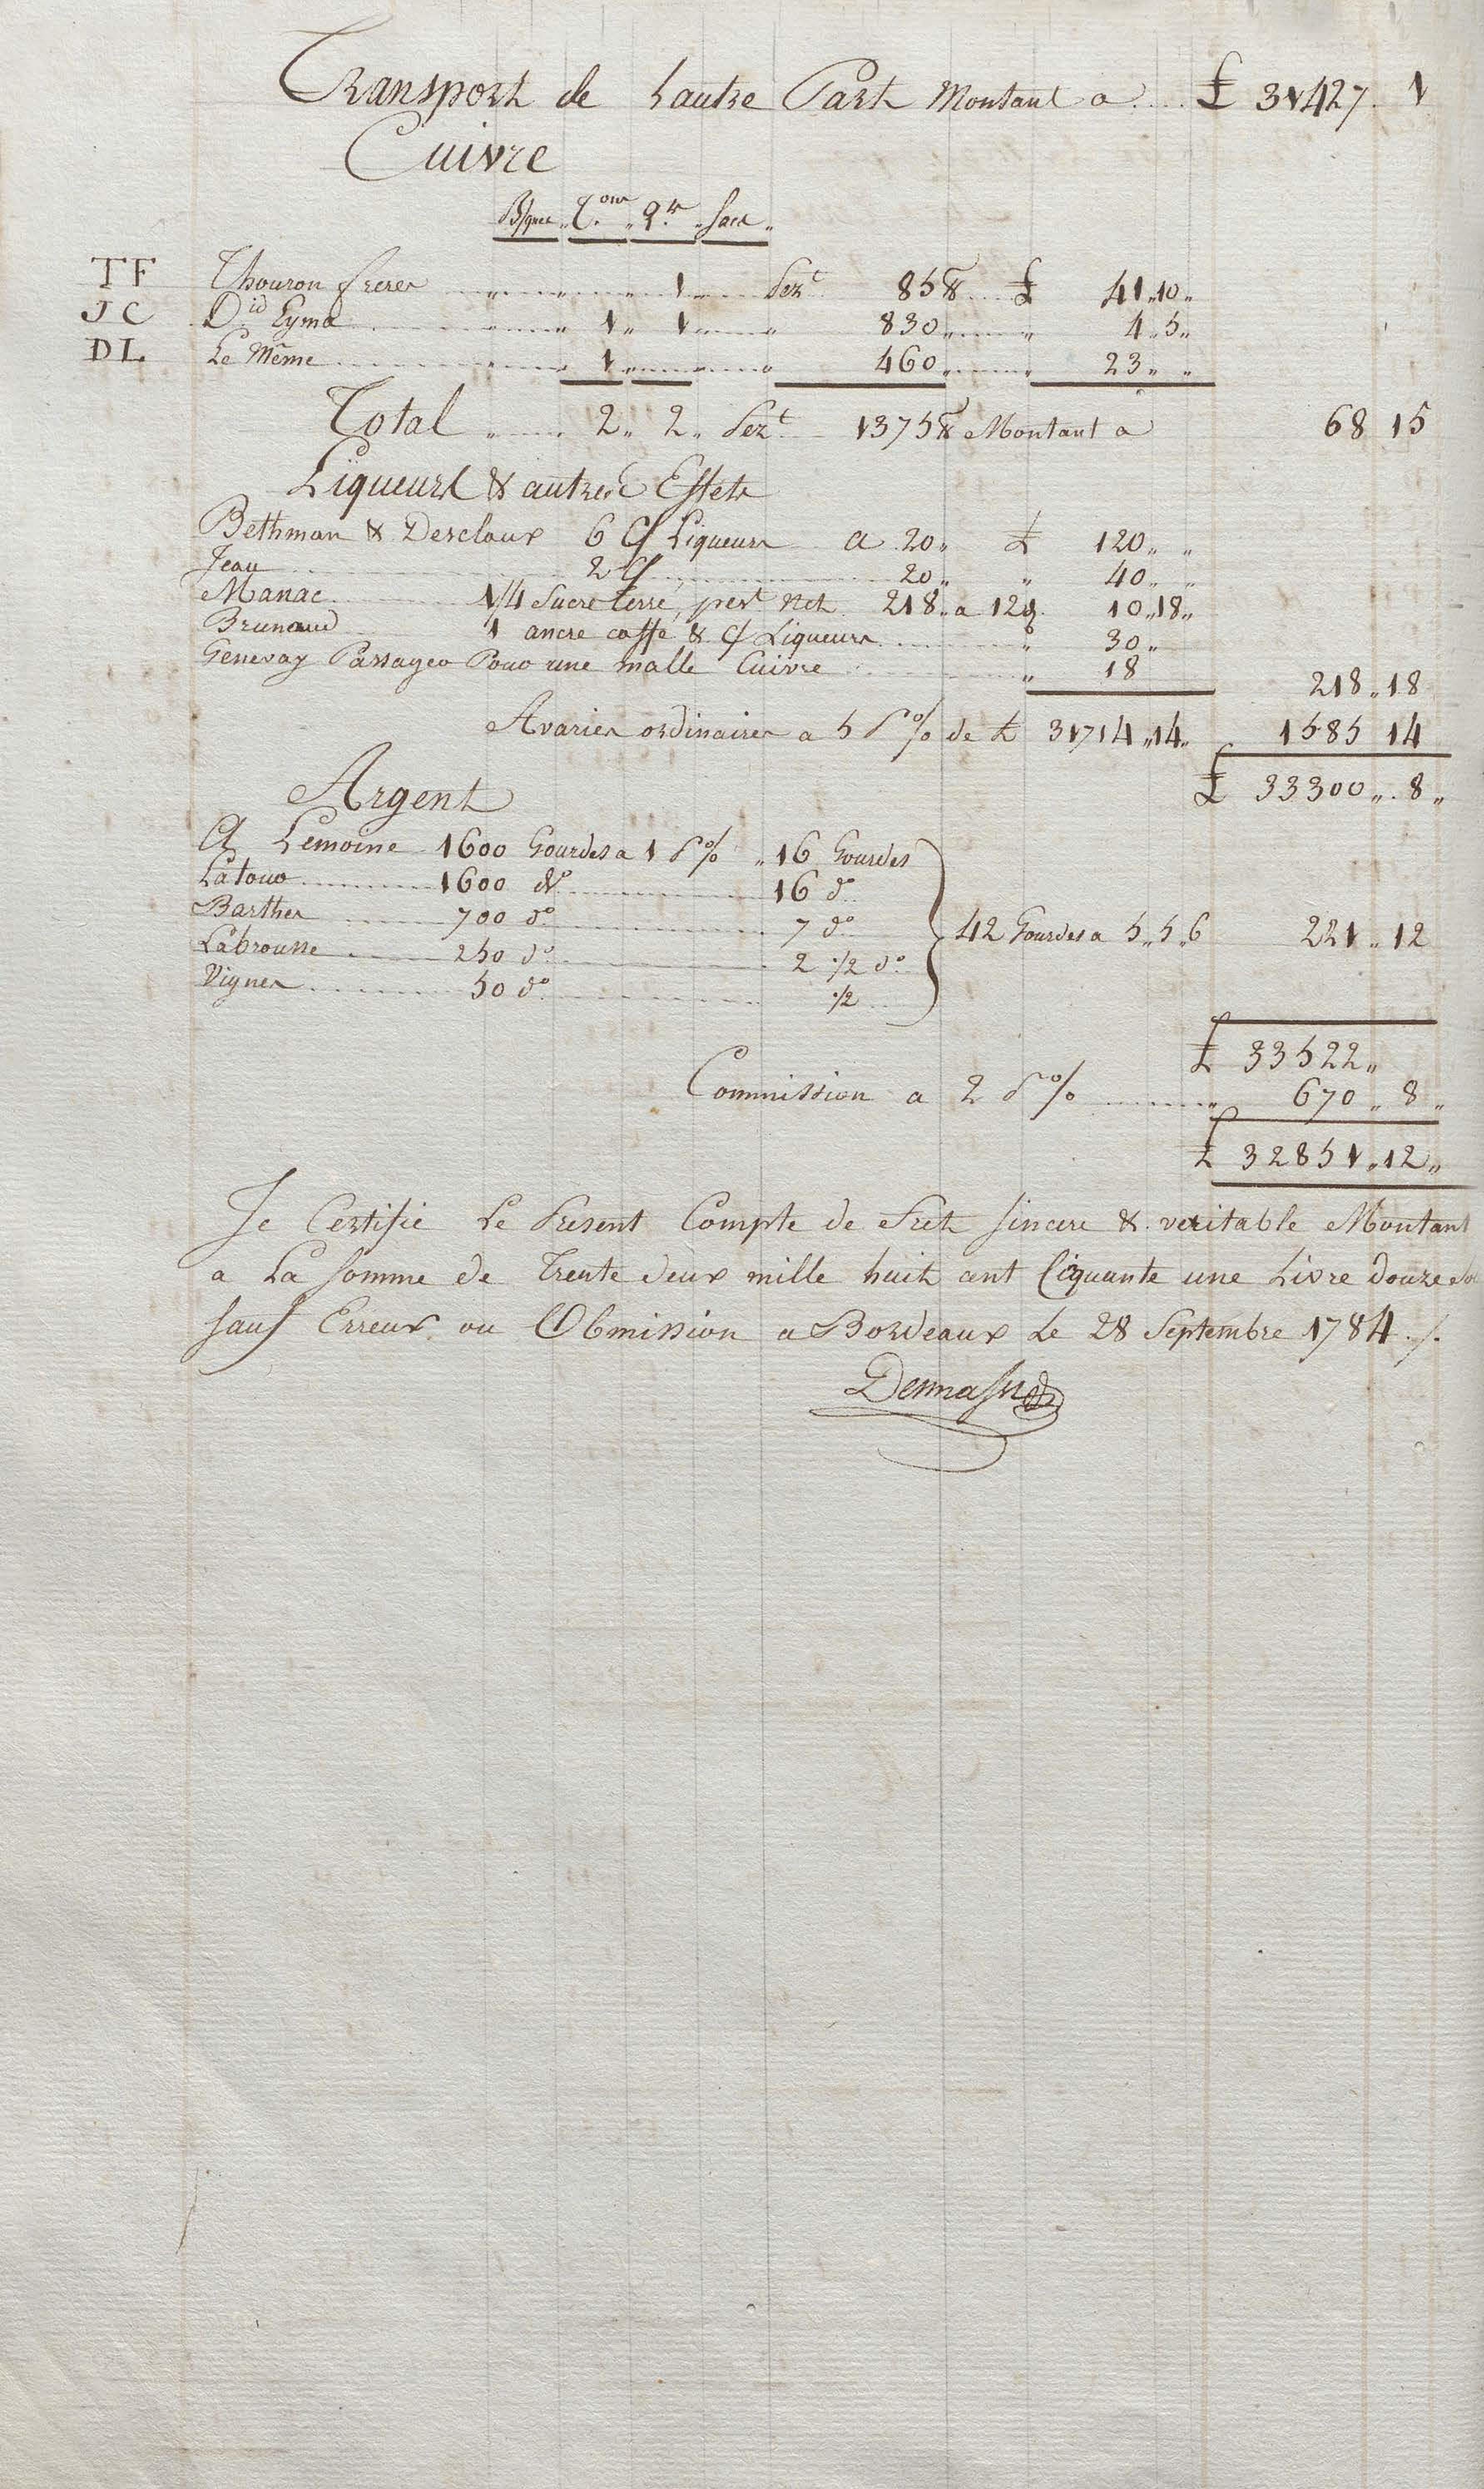 Transport de Lautre Part Montant a £ 31427. 1
Cuivre
Bques „ T.ons „ Q.ts „ Sacs „
TF Thouron freres „ „ 1 „ Pezt 85 ℔ £ 41 „ 10 „
JC Did Eyma „ 1 „ 1 „ „ 830 „ „ 4 „ 5 „
DL Le Même „ 1 „ „ 460 „ „ 23 „ „
Total „ 2 „ 2 „ Pezt 1375 ℔ Montant a 68 15
Liqueurs & autres Effets
Bethman & Desclaux 6 C/ Liqueurs a 20 „ £ 120 „ „
Jeau 2 C/ 20 „ „ 40 „ „
Manac 1/4 Sucre terré, pest Net 218 „ a 12 10 „ 18 „
Brunaud 1 ancre caffé & C/ Liqueurs „ 30 „
Genevay Passager Pour une malle Cuivre „ 18 218 „ 18
Avaries ordinaires a 5 P% de £ 31714 „ 14 „ 1585 14
£ 33300 „ 8 „
Argent
A Lemoine 1600 Gourdes a 1 P% „ 16 Gourdes
Latour 1600 do 16 do
Barthes 700 do 7 do 42 Gourdes a 5 „ 5 „ 6 221 „ 12
Labrousse 250 do 2 1/2 do
Vignes 50 do 1/2
£ 33522 „
Commission a 2 P% „ 670 „ 8 „
£ 32851 „ 12 „
Je Certifie Le Present Compte de Fret sincere & veritable Montant
a La somme de Trente deux mille huit cent Ciquante une Livre douze
sauf Erreur ou Obmission a Bordeaux Le 28 Septembre 1784 ./.